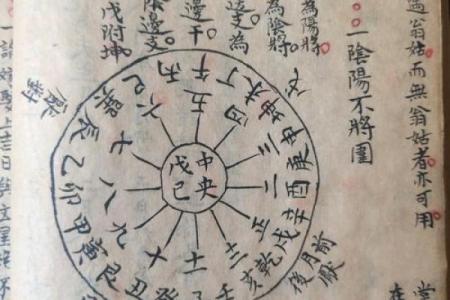 翁姑而無翁姑者亦可用
一陰陽不將圖
為陽將
為陰將
邊支為
邊干
陰邊支
戊附坤
厭對
丙午丁未坤申庚酉辛戌乾亥壬
癸丑艮寅甲卯乙辰巽巳
五四三二正十二十一十九八七六
中央
戊己
前
月厭
後
堂